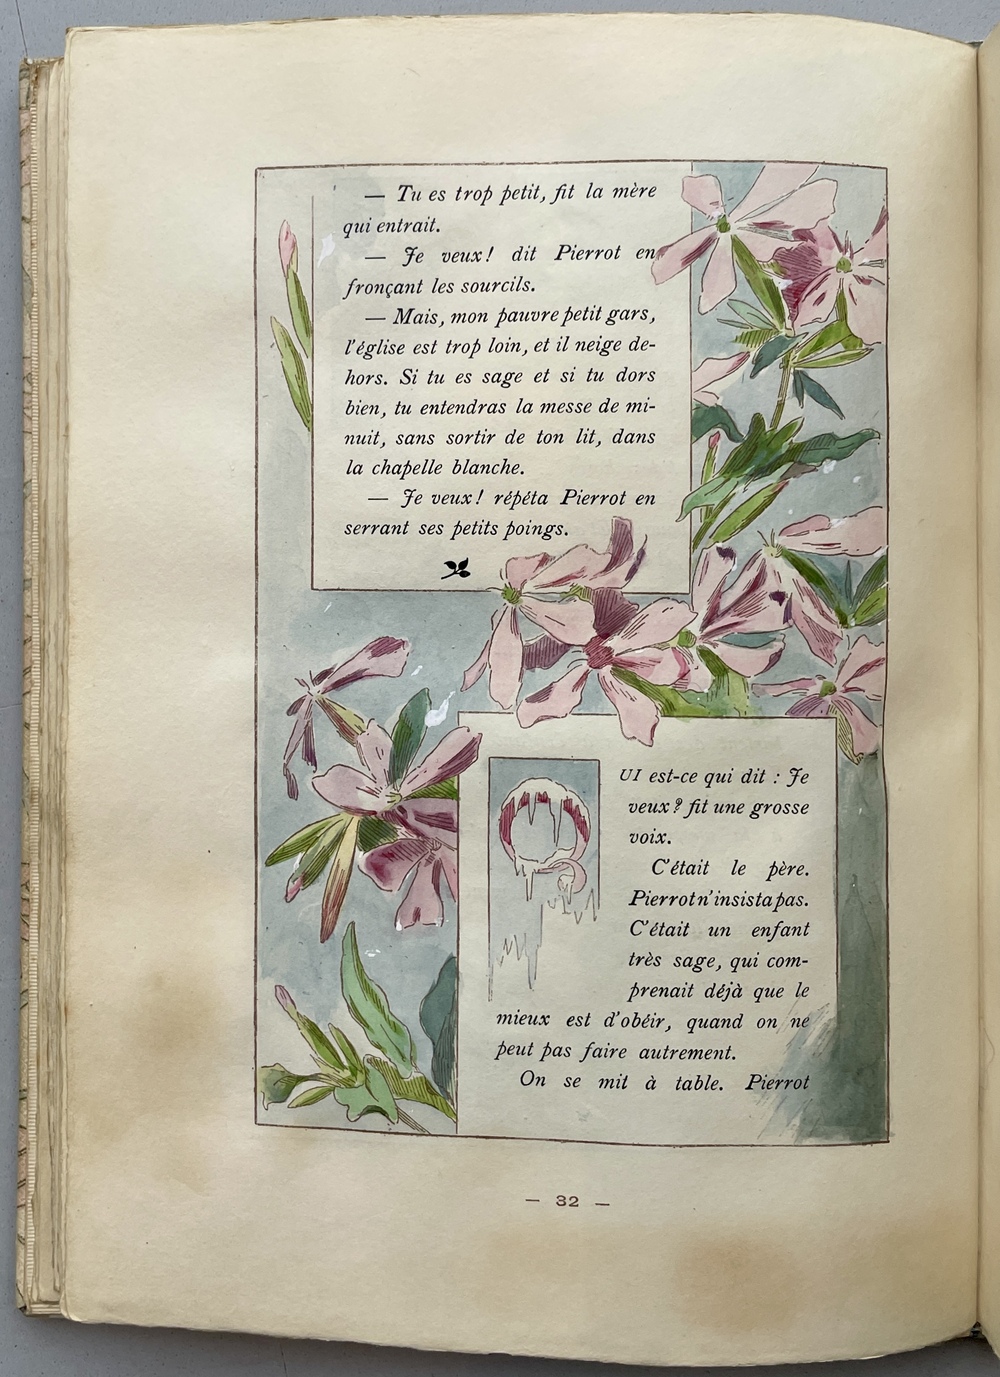 — Tu es trop petit, fit la mère
qui entrait.
— Je veux! dit Pierrot en
fronçant les sourcils.
— Mais, mon pauvre petit gars,
l'église est trop loin, et il neige de-
hors. Si tu es sage et si tu dors
bien, tu entendras la messe de mi-
nuit, sans sortir de ton lit, dans
la chapelle blanche.
— Je veux! répéta Pierrot en
serrant ses petits poings.
QUI est-ce qui dit : Je
veux? fit une grosse
voix.
C'était le père.
Pierrot n'insista pas.
C'était un enfant
très sage, qui com-
prenait déjà que le
mieux est d'obéir, quand on ne
peut pas faire autrement.
On se mit à table. Pierrot
— 32 —